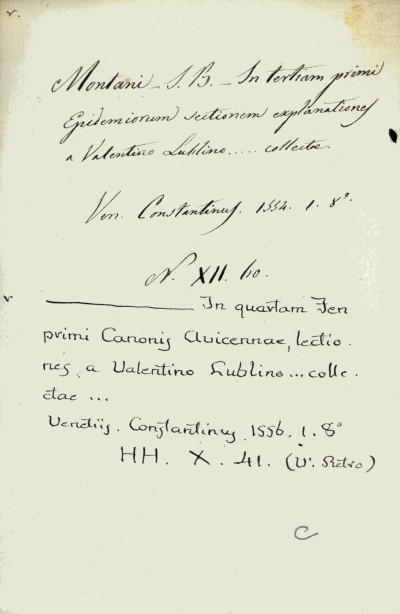 v.
Montani J. B. - In tertiam primi
Epidemiorum sectionem explanationes
a Valentino Lublino..... collectae.
Ven. Constantinus. 1554. 1. 8°.
N. XII. 60.
v
In quartam Fen
primi Canonis Avicennae, lectio.
nes, a Valentino Lublino... colle.
ctae ...
Venetiis. Constantinus, 1556. 1. 8°
HH. X. 41. (V. Retro)
C